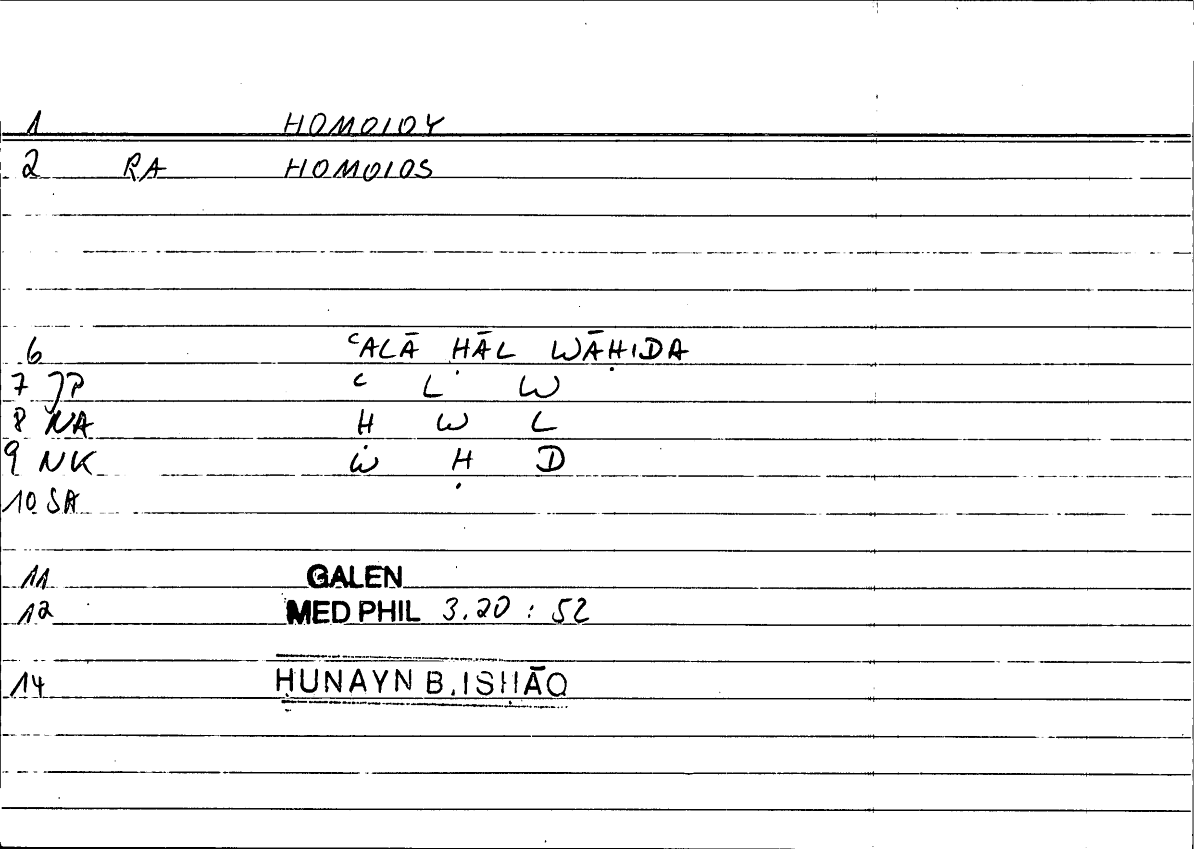 1 HOMOIOY
2 RA HOMOIOS
6 ʿALĀ ḤĀL WĀḤIDA
7 JP ʿ L W
8 NA H W L
9 NK W Ḥ D
10 SA
11 GALEN
12 MED PHIL 3.20 : 52
14 ḤUNAYN B. ISḤĀQ